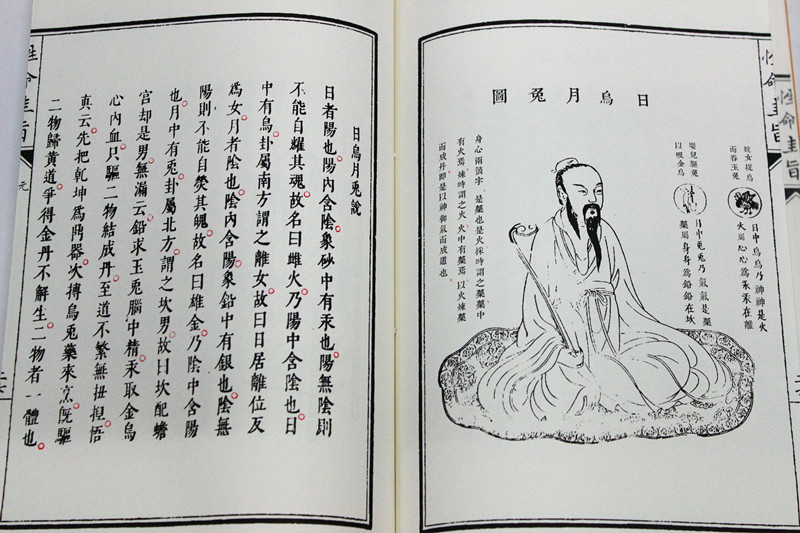 性命圭旨
性命圭旨
日烏月兔圖
姹女捉烏
而吞玉兔
日中烏烏乃神神是火
火屬心心爲汞汞在離
嬰兒驅兔
以吸金烏
月中兔兔乃氣氣是藥
藥屬身身爲鉛鉛在坎
身心兩箇字是藥也是火採時謂之藥藥中
有火焉煉時謂之火火中有藥焉以火煉藥
而成丹即是以神御氣而成道也
日烏月兔說
日者陽也陽內含陰象砂中有汞也陽無陰則
不能自耀其魂故名曰雌火乃陽中含陰也日
中有烏卦屬南方謂之離女故曰日居離位反
爲女月者陰也陰內含陽象鉛中有銀也陰無
陽則不能自熒其魄故名曰雄金乃陰中含陽
也月中有兔卦屬北方謂之坎男故曰坎配蟾
宮却是男無漏云鉛求玉兔腦中精汞取金烏
心內血只驅二物結成丹至道不繁無扭捏悟
真云先把乾坤爲鼎器次搏烏兔藥來烹旣驅
二物歸黃道爭得金丹不解生二物者一體也
性命圭旨
元